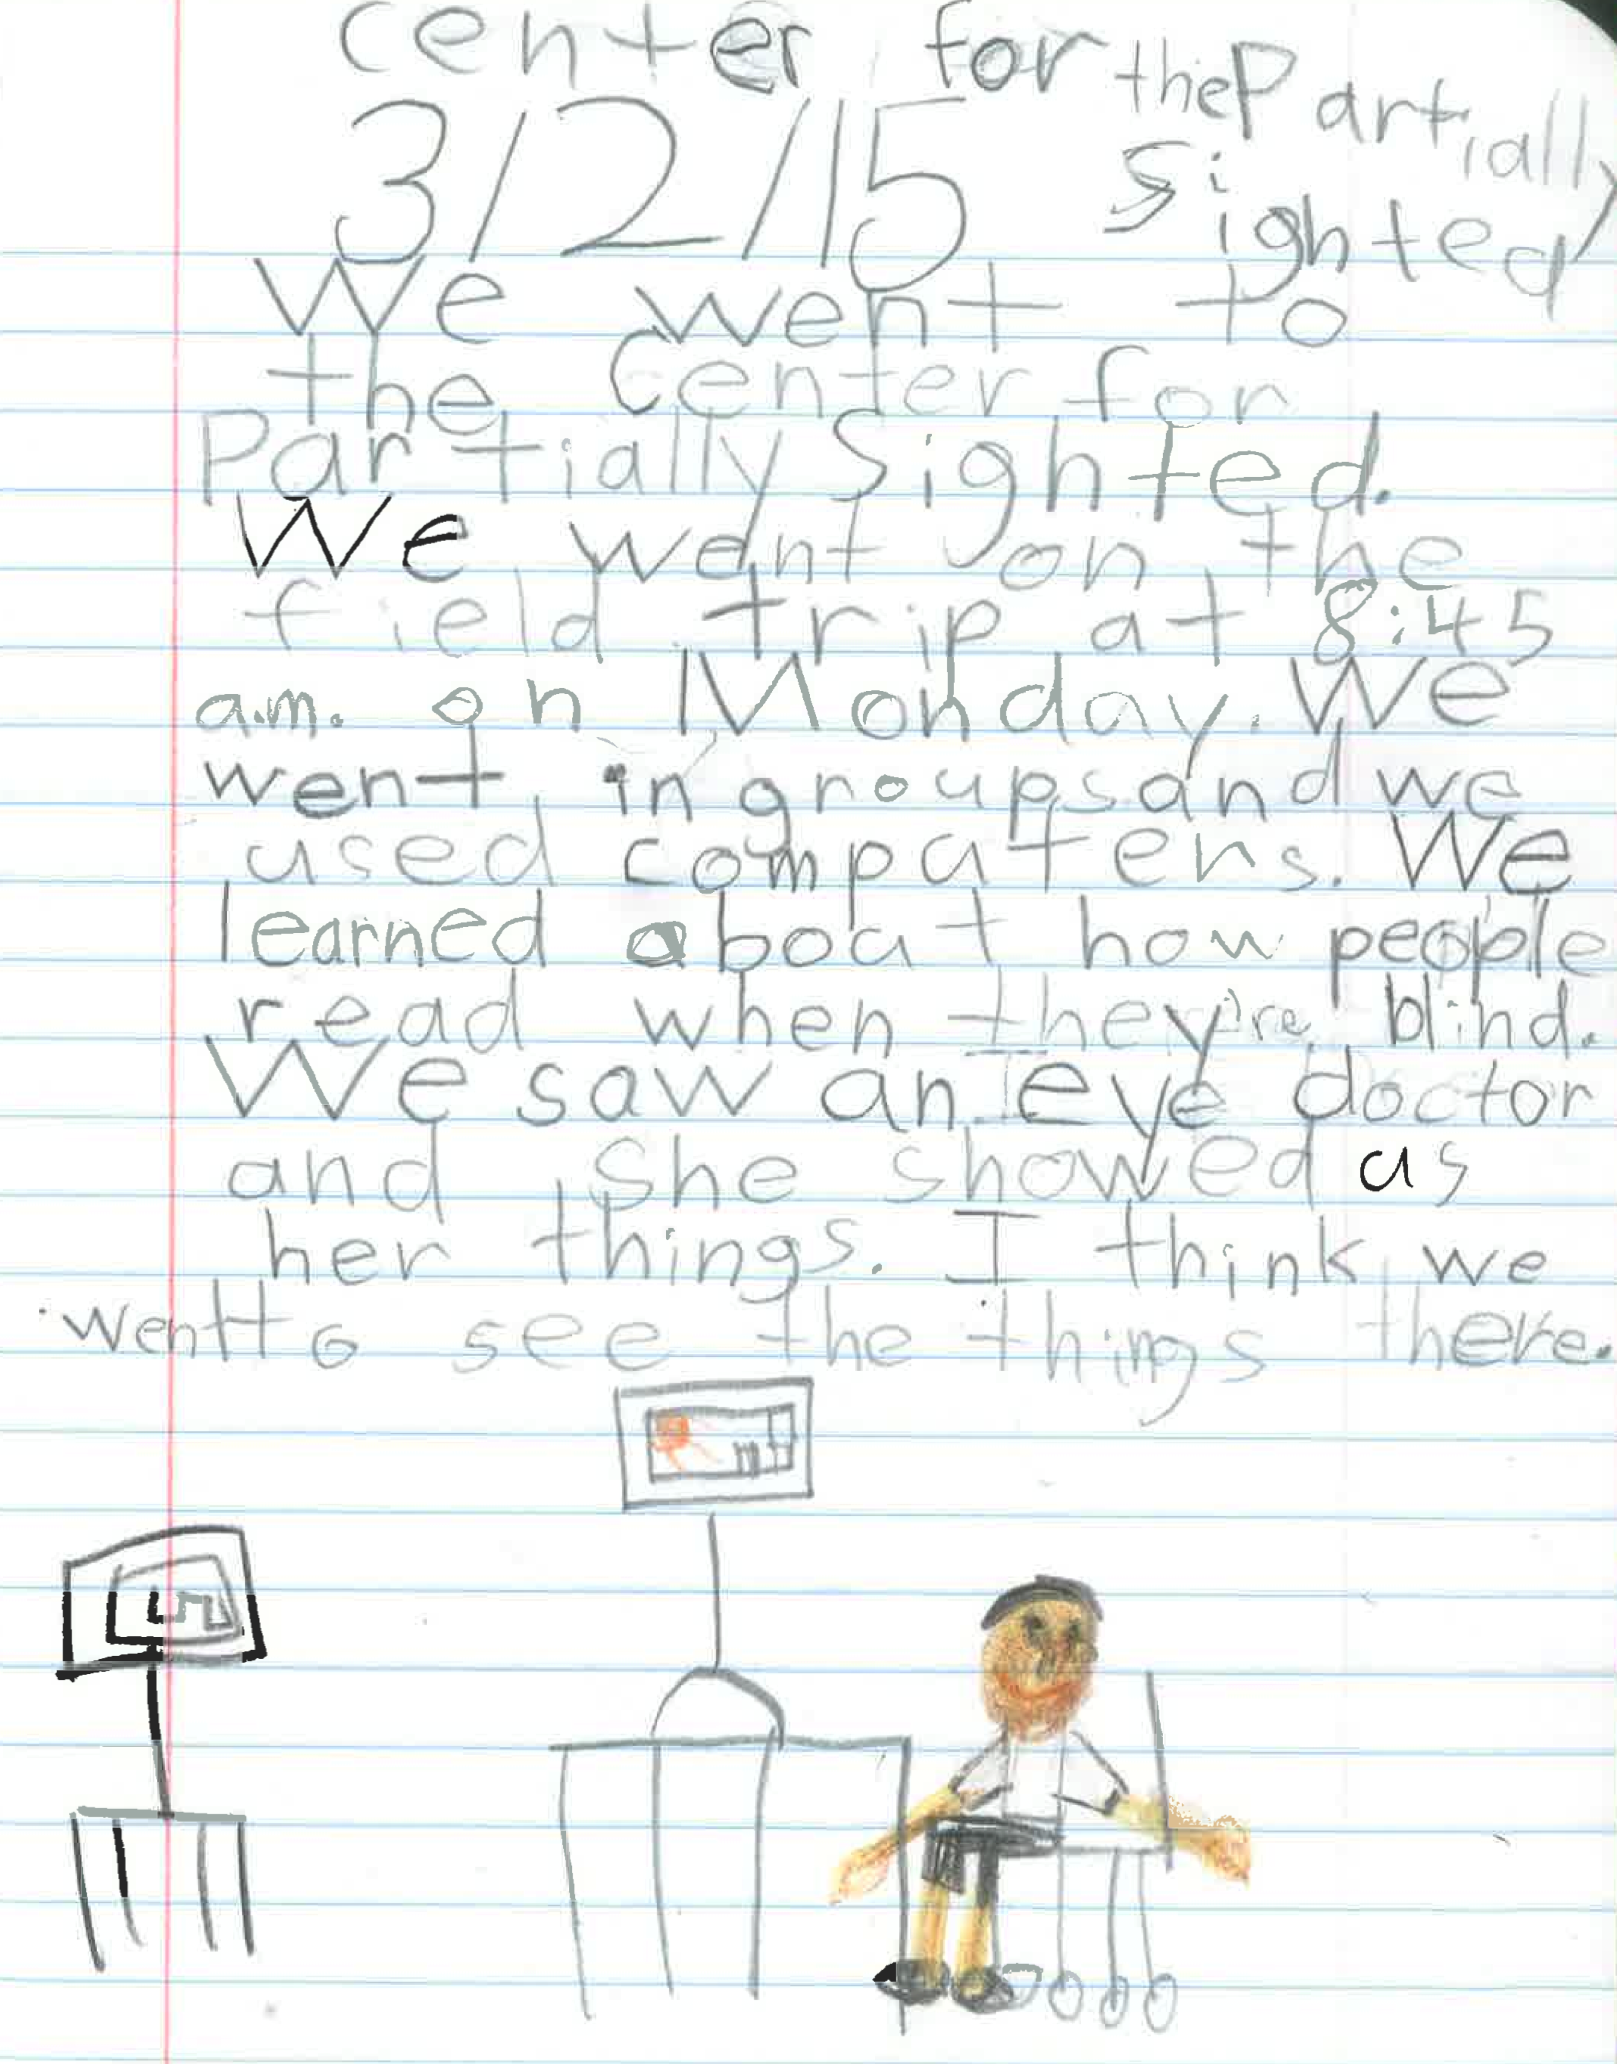 Center for the Partially
Sighted
3/2/15
We went to
the Center for
Partially Sighted.
We went on the
field trip at 8:45
a.m. on Monday. We
went in groups and we
used computers. We
learned about how people
read when they're blind.
We saw an eye doctor
and she showed us
her things. I think we
went to see the things there.